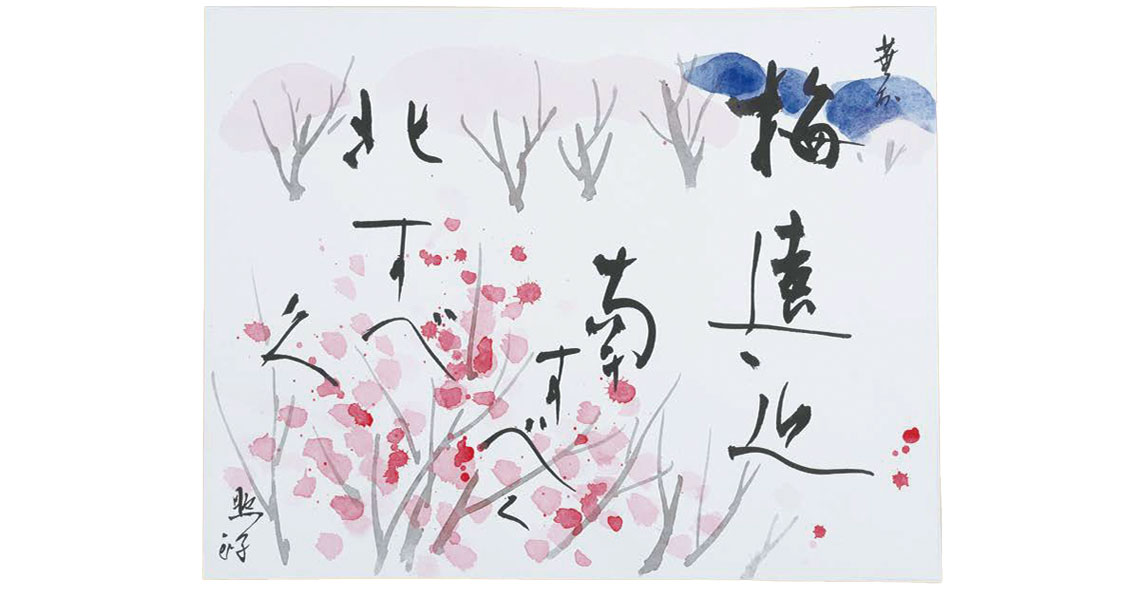 蕪村
梅遠近
南すべく
北すべ久